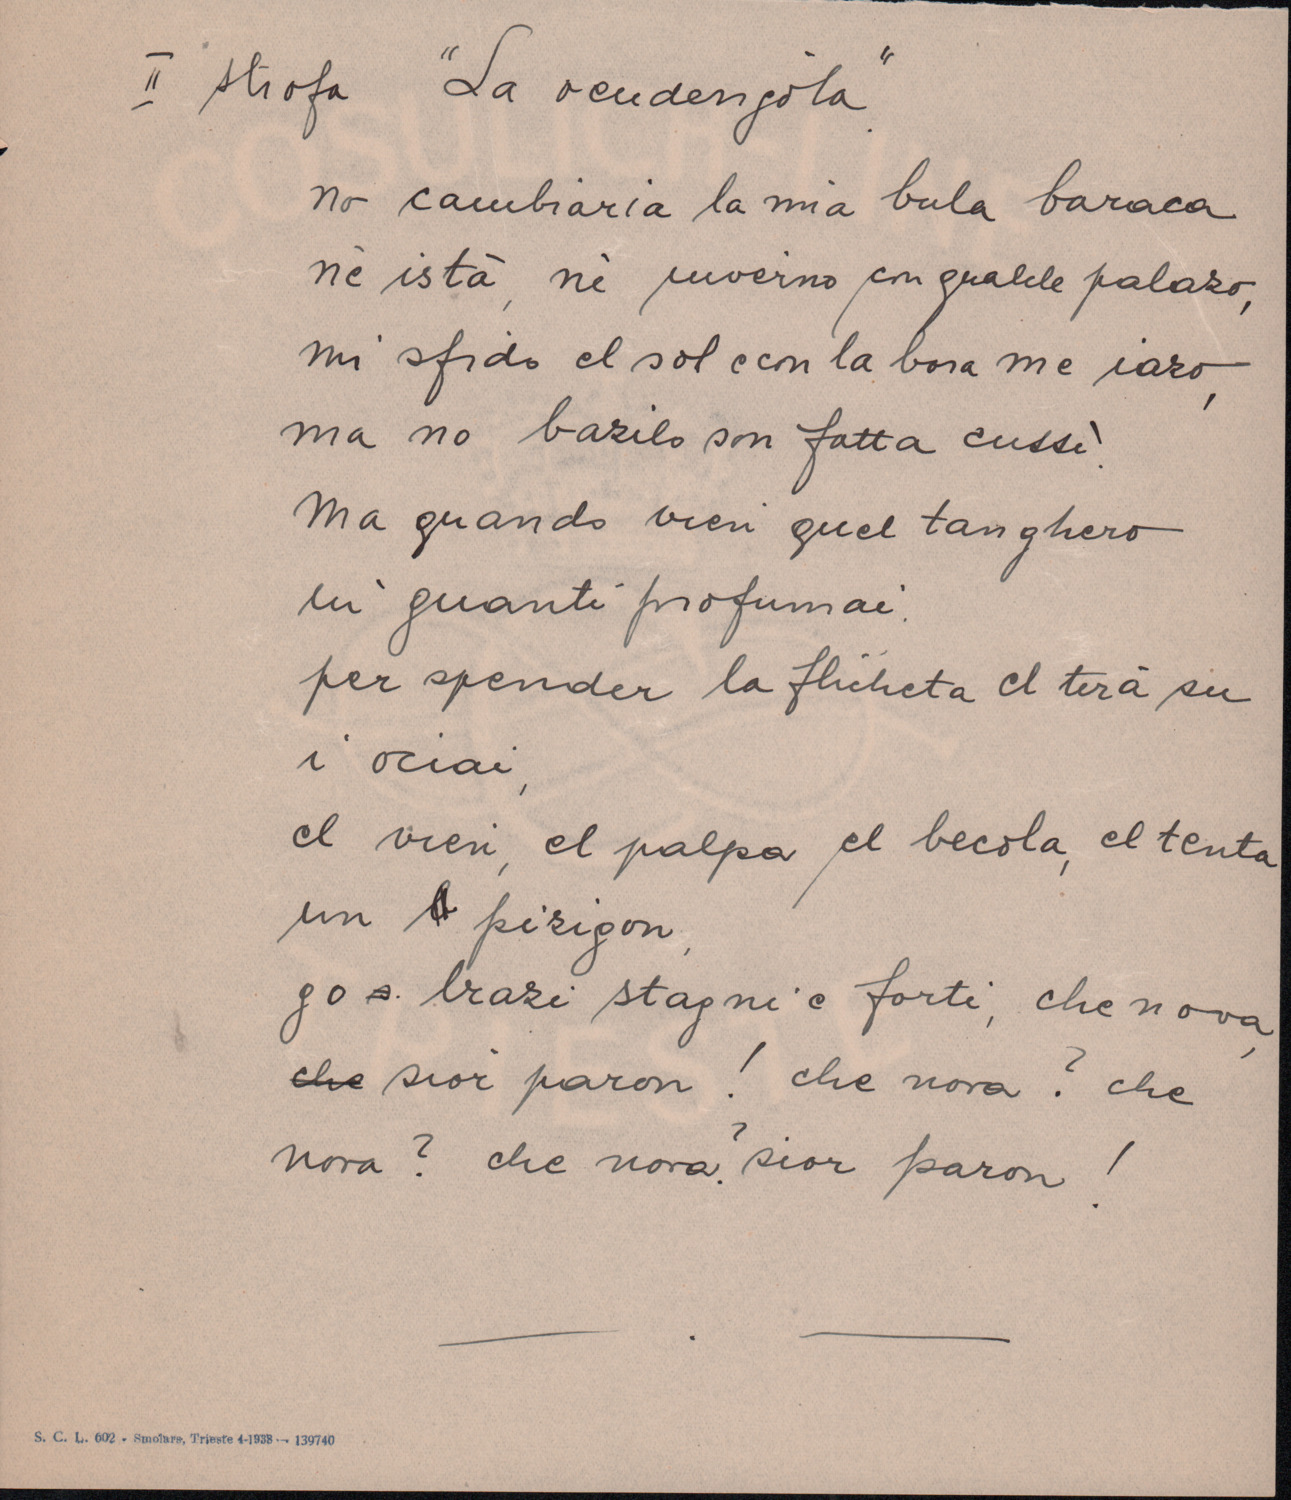 II strofa "La vendengola".
no cambiaria la mia bula baraca
nè istà, nè inverno con qualche palazo,
mi sfido el sol e con la bora me iazo,
ma no bazilo son fatta cussì.
Ma quando vien quel tanghero
in guanti profumai.
per spender la flicheta el tirà su
i ociai,
el vien, el palpa el becola, el tenta
un pizigon,
go brazi stagni e forti, che nova,
che sior paron! che nova? che
nova? che nova? sior paron!
S. C. L. 602 - Smolars, Trieste 4-1938 - 139740